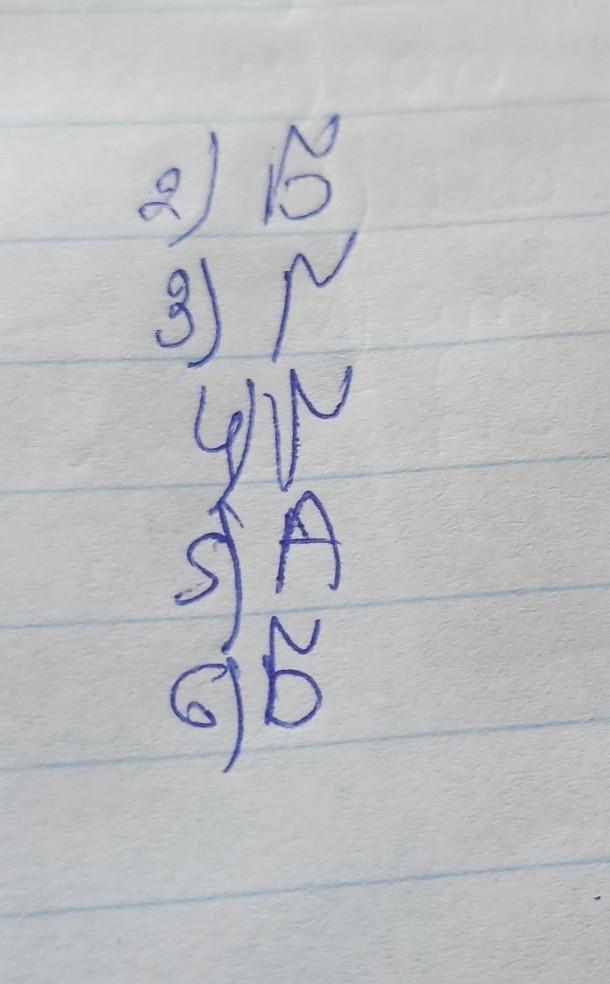 2) Б
3) Г
4) Г
5) А
6) Б